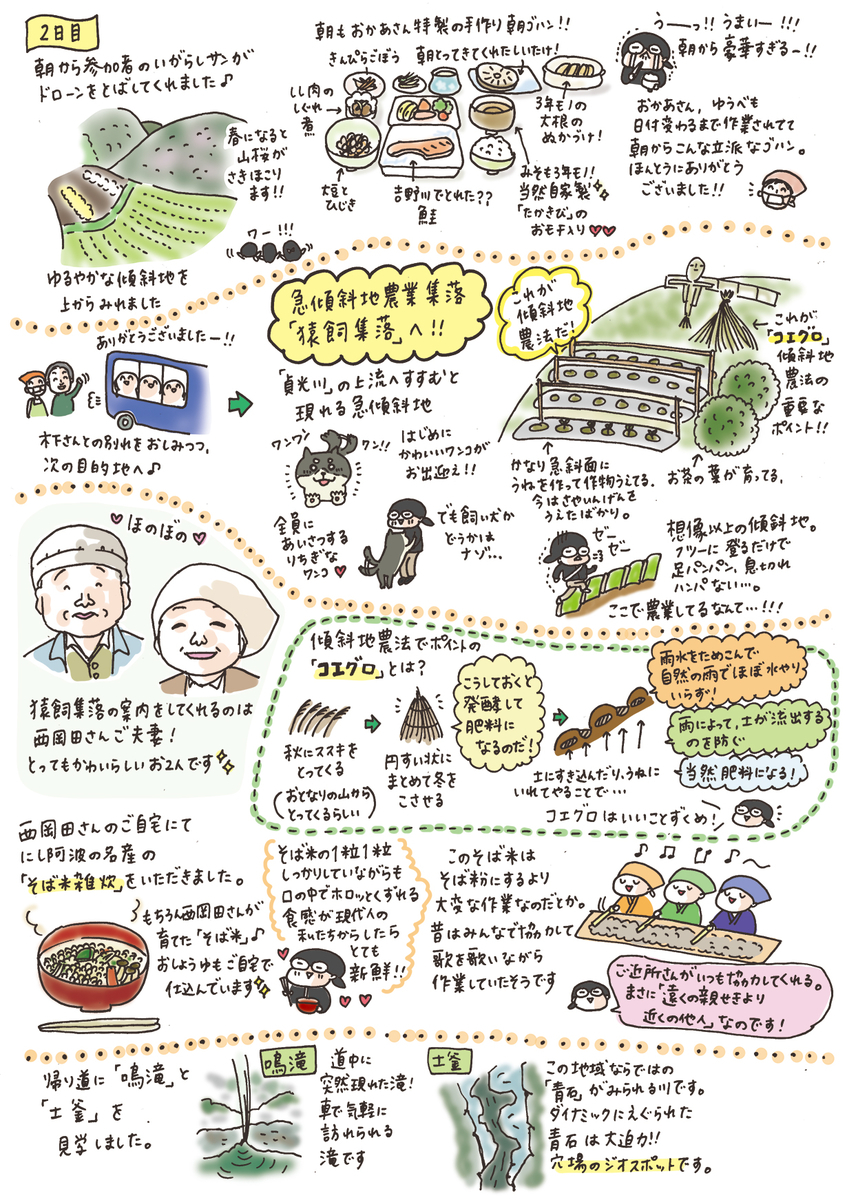 2日目
朝から参加者のいがらしサンが
ドローンをとばしてくれました♪
春になると
山桜が
さきほこり
ます!!
ワー!!!
ゆるやかな傾斜地を
上からみれました
朝もおかあさん特製の手作り朝ゴハン!!
きんぴらごぼう
朝とってきてくれたしいたけ!
しし肉の
しぐれ
煮
3年モノの
大根の
ぬかづけ!
大豆と
ひじき
吉野川でとれた??
鮭
みそも3年モノ!
当然自家製
「たかきび」の
おモチ入り♥♥
うーっ!! うまいー!!!
朝から豪華すぎるー!!
おかあさん、ゆうべも
日付変わるまで作業されてて
朝からこんな立派なゴハン。
ほんとうにありがとう
ございました!!
ありがとうございましたー!!
木下さんとの別れをおしみつつ、
次の目的地へ♪
急傾斜地農業集落
「猿飼集落」へ!!
「貞光川」の上流へすすむと
現れる急傾斜地
ワンワン
ワン!!
はじめに
かわいいワンコが
お出迎え!!
全員に
あいさつする
りちぎな
ワンコ♥
でも飼い犬か
どうかは
ナゾ…
これが
傾斜地
農法だ!
これが
「コエグロ」
傾斜地
農法の
重要な
ポイント!!
かなり急斜面に
うねを作って作物うえてる。
今はさやいんげんを
うえたばかり。
お茶の葉が育ってる。
ゼー
ゼー
想像以上の傾斜地。
フツーに登るだけで
足パンパン、息切れ
ハンパない…。
ここで農業してるなんて…!!!
♥ほのぼの♥
猿飼集落の案内をしてくれるのは
西岡田さんご夫妻!
とってもかわいらしいお2人です
傾斜地農法でポイントの
「コエグロ」とは?
秋にススキを
とってくる
(おとなりの山から
とってくるらしい)
円すい状に
まとめて冬を
こさせる
こうしておくと
発酵して
肥料に
なるのだ!
土にすき込んだり、うねに
いれてやることで…
雨水をためこんで
自然の雨でほぼ水やり
いらず!
雨によって、土が流出する
のを防ぐ
当然肥料になる!
コエグロはいいことずくめ!
西岡田さんのご自宅にて
にし阿波の名産の
「そば米雑炊」をいただきました。
もちろん西岡田さんが
育てた「そば米」♪
おしょうゆもご自宅で
仕込んでいます
そば米の1粒1粒
しっかりしていながらも
口の中でホロッとくずれる
食感が現代人の
私たちからしたら
とても
新鮮!!
このそば米は
そば粉にするより
大変な作業なのだとか。
昔はみんなで協力して
歌を歌いながら
作業していたそうです
ご近所さんがいつも協力してくれる。
まさに「遠くの親せきより
近くの他人」なのです!
帰り道に「鳴滝」と
「土釜」を
見学しました。
鳴滝
道中に
突然現れた滝!
車で気軽に
訪れられる
滝です
土釜
この地域ならではの
「青石」がみられる川です。
ダイナミックにえぐられた
青石は大迫力!!
穴場のジオスポットです。